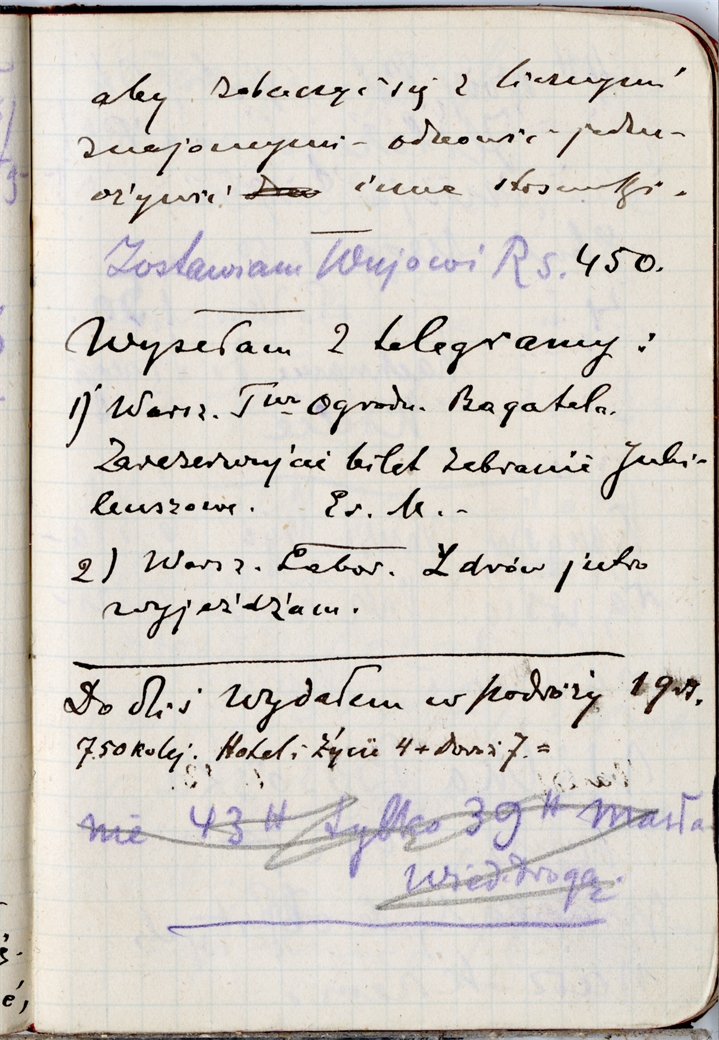 aby zobaczyć się z licznymi
znajomymi - odnowić jedne -
ożywić inne stosunki.
Zostawiam Wujowi Rs. 450.
Wysełam 2 telegramy:
1) Warsz. Twr Ogrodn. Bagatela.
Zarezerwujcie bilet zebranie Jubi-
leuszowe. Er. M. -
2) Warsz. Labor. Zdrów jutro
wyjeżdżam.
Do dziś wydałem w podróży 19
7.50 kolej. Hotel i Życie 4 + 7. =
nie 43 tylko 39 masła